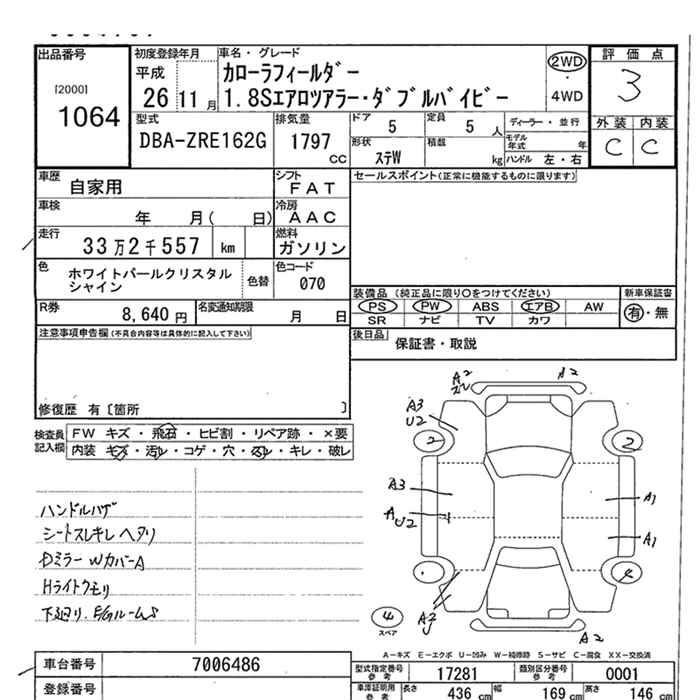 出品番号
[2000]
1064
初度登録年月
平成
26 11 月
車名・グレード
カローラフィールダー
1.8Sエアロツアラー・ダブルバイビー
2WD
・
4WD
評価点
3
外装 内装
C C
型式
DBA-ZRE162G
排気量
1797
CC
ドア
5
定員
5 人
形状
ステW
積載
kg
ディーラー・並行
モデル年式 年
ハンドル 左・右
車歴
自家用
シフト
FAT
セールスポイント(正常に機能するものに限ります)
車検
年 月( 日)
冷房
AAC
走行
33万2千557 km
燃料
ガソリン
色
ホワイトパールクリスタル
シャイン
色替
色コード
070
R券
8,640 円
名変通知期限
月 日
装備品 (純正品に限り〇をつけてください)
PS PW ABS エアB AW
SR ナビ TV カワ
新車保証書
有・無
注意事項申告欄(不具合内容等は具体的に記入して下さい)
後日品
保証書・取説
修復歴 有〔箇所 〕
検査員
記入欄
FW キズ・飛石・ヒビ割・リペア跡・×要
内装 キズ・汚レ・コゲ・穴・スレ・キレ・破レ
ハンドルハゲ
シートスレキレヘタリ
DミラーWカバーA
Hライトクモリ
下廻り、E/GルームS
A2
A2
A3
U2
2
2
A3
A
U2
A1
A1
A2
A2
4
スペア
A-キズ E-エクボ U-凹み W-補修跡 S-サビ C-腐食 XX-交換済
車台番号
7006486
登録番号
型式指定番号
参考
17281
類別区分番号
参考
0001
車庫証明用
参考
長さ
436 cm
幅
169 cm
高さ
146 cm